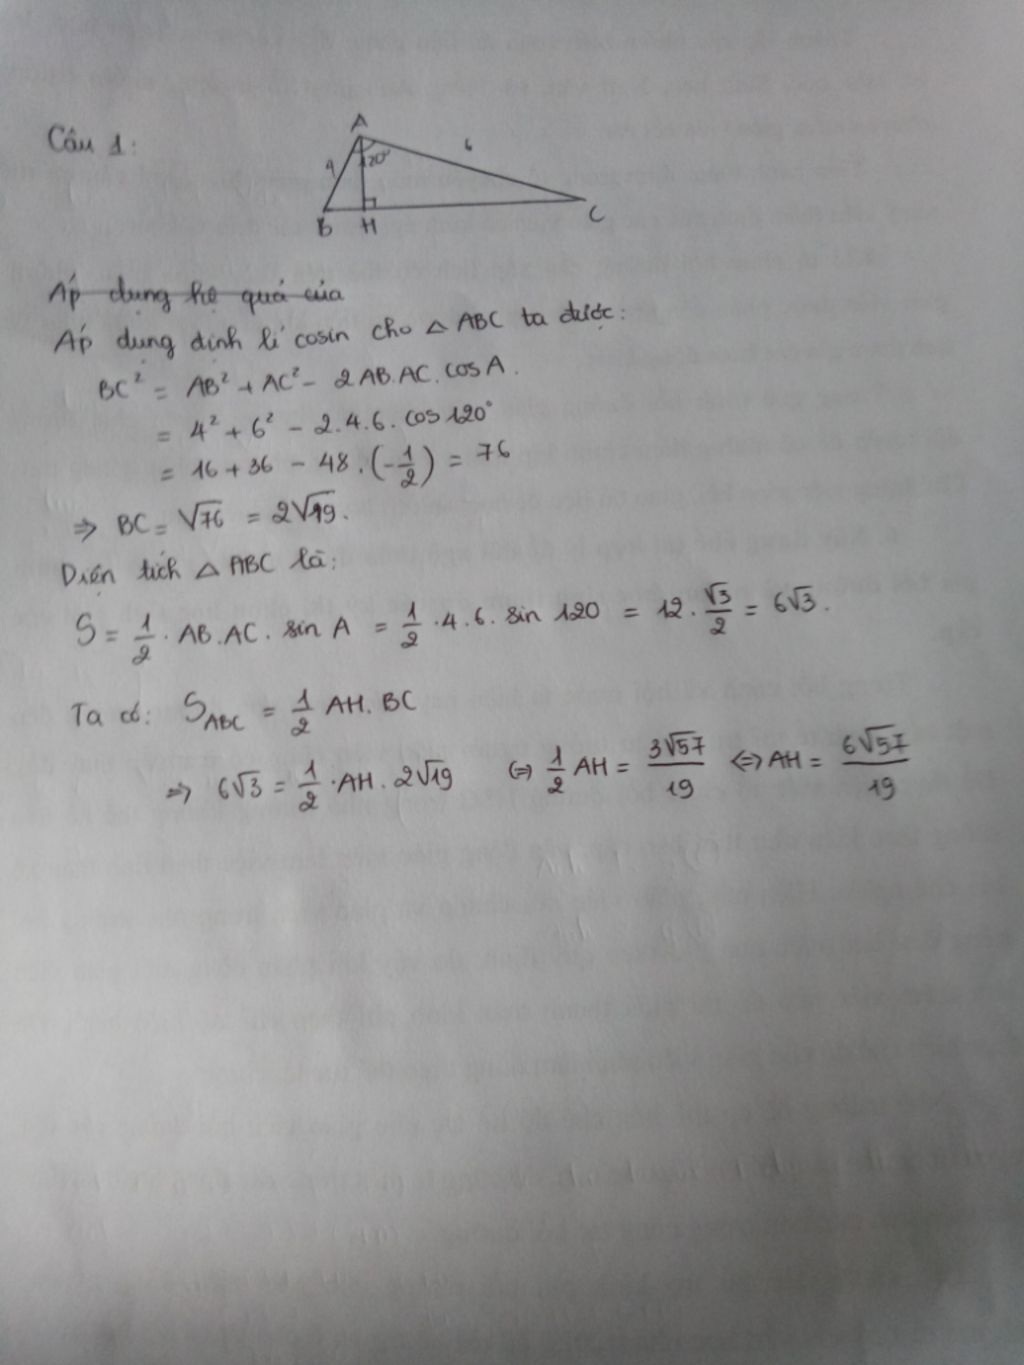 Câu 1:
A
4
120°
6
B
H
C
Áp dụng hệ quả của
Áp dụng định lí cosin cho △ ABC ta được:
BC² = AB² + AC² - 2AB.AC.cos A.
= 4² + 6² - 2.4.6. cos 120°
= 16 + 36 - 48.(-1/2) = 76
⇒ BC = √76 = 2√19.
Diện tích △ ABC là:
S = 1/2 . AB.AC. sin A = 1/2 . 4.6. sin 120 = 12. √3/2 = 6√3.
Ta có: S_ABC = 1/2 AH. BC
⇒ 6√3 = 1/2 . AH. 2√19 ⇔ 1/2 AH = 3√57/19 ⇔ AH = 6√57/19